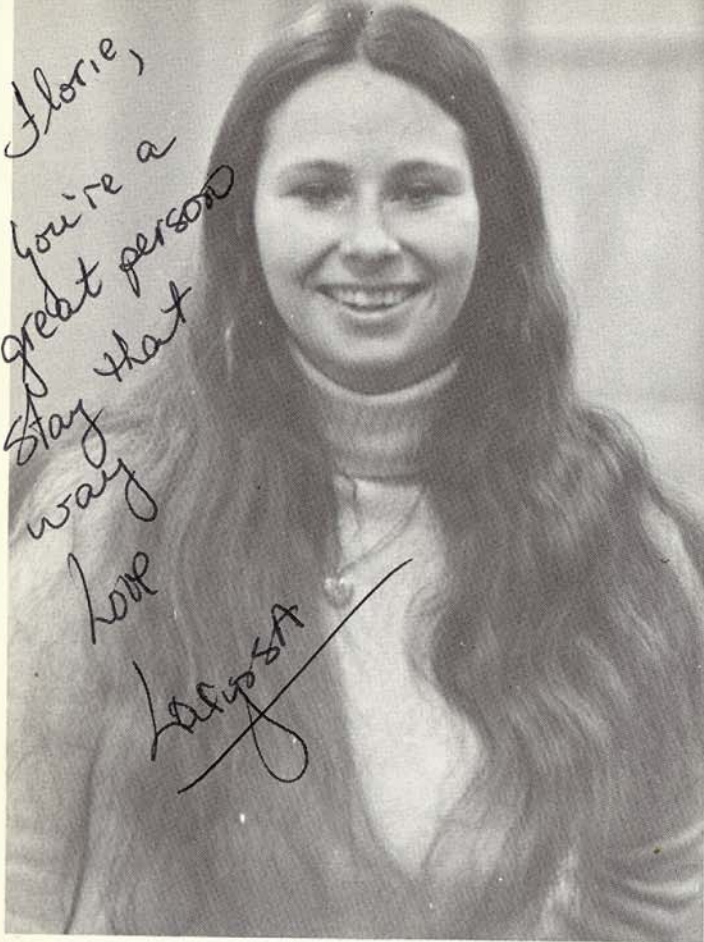 Florie,
You're a
great person
stay that
way
Love
LarysSA